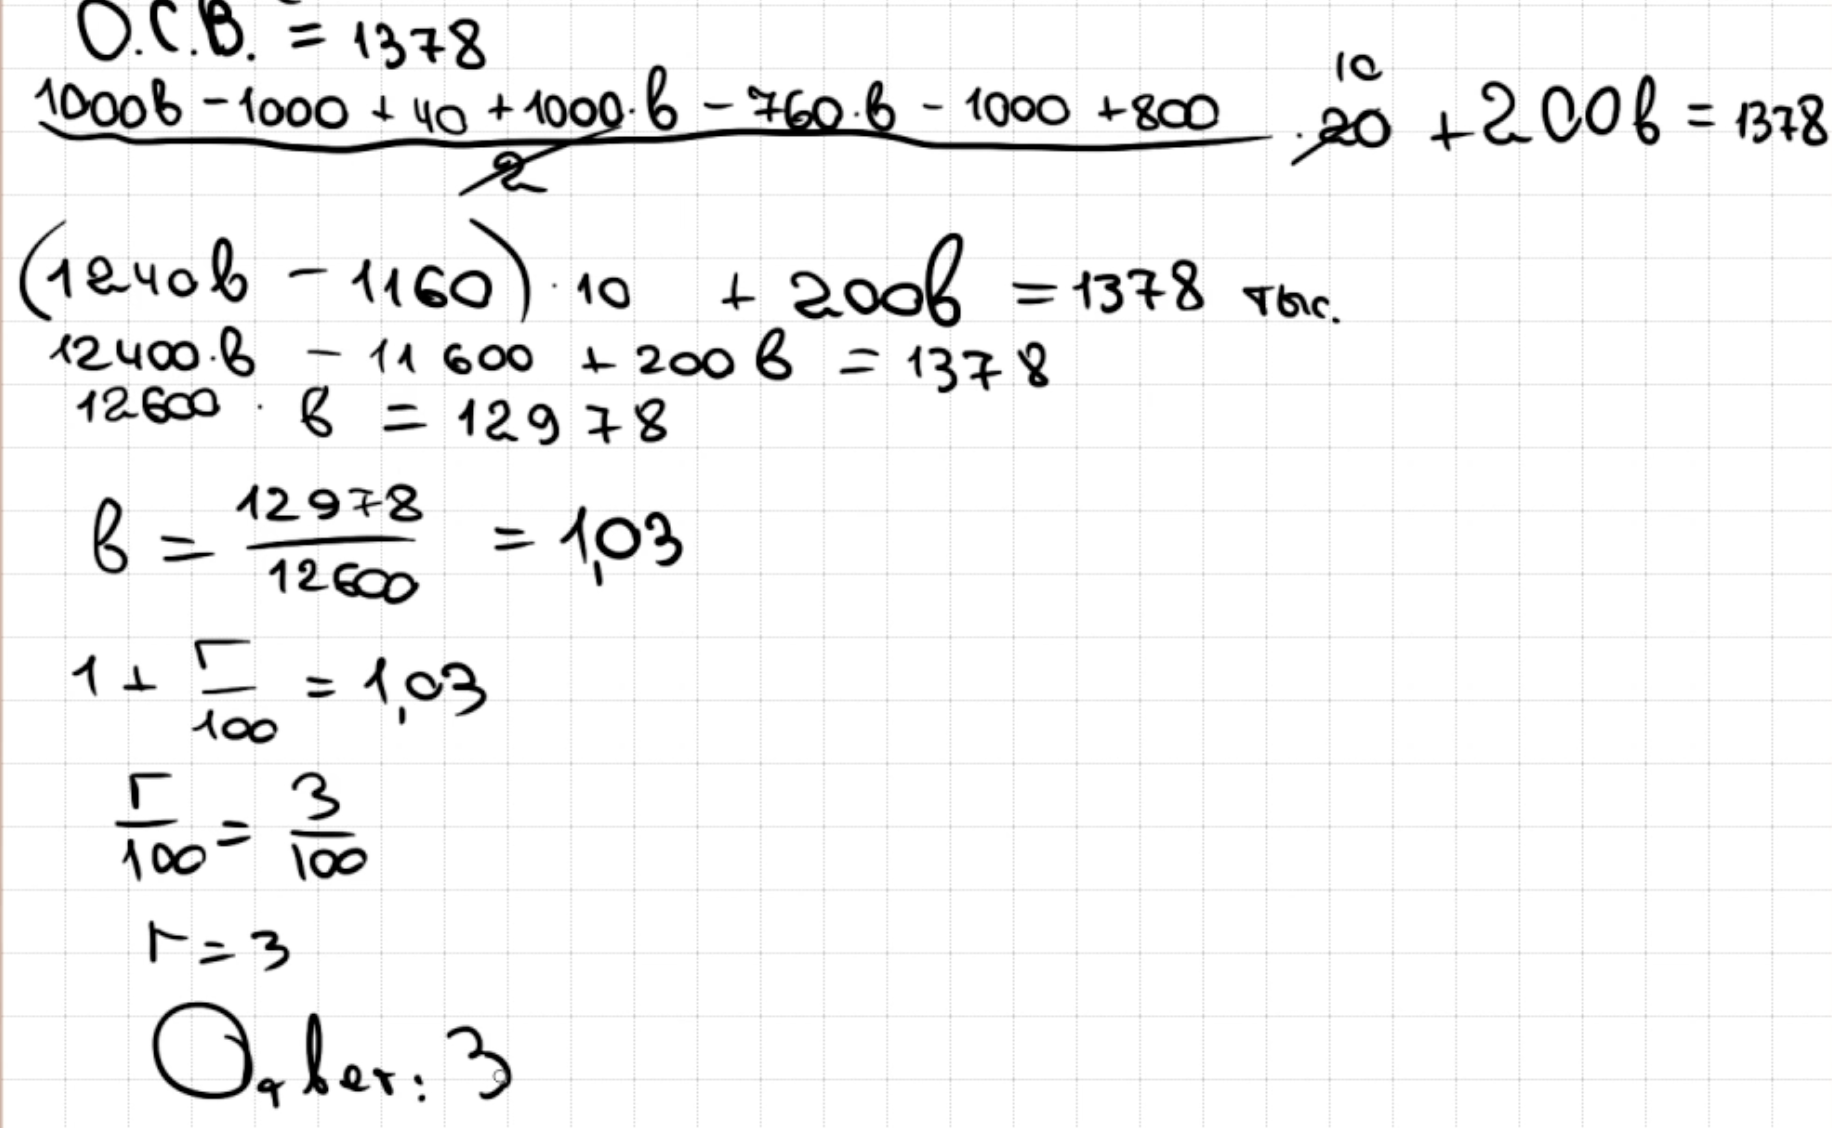 О.С.В. = 1378
(1000b - 1000 + 40 + 1000·b - 760·b - 1000 + 800)/2 · 20 10 + 200b = 1378
(1240b - 1160) · 10 + 200b = 1378 тыс.
12400·b - 11600 + 200b = 1378
12600 · b = 12978
b = 12978/12600 = 1,03
1 + r/100 = 1,03
r/100 = 3/100
r = 3
Ответ: 3